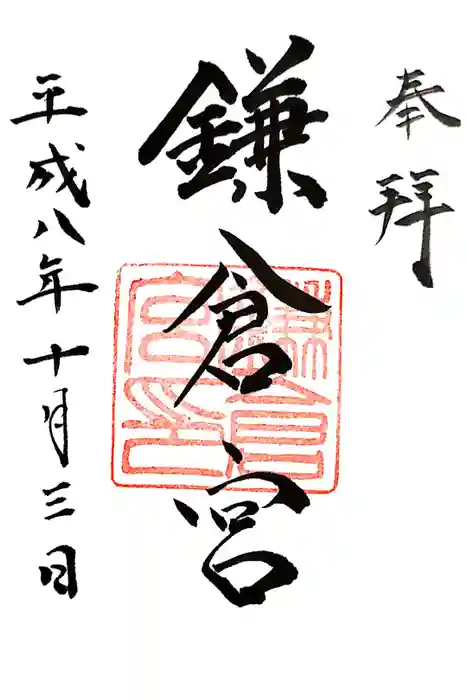 奉拝
鎌倉宮
平成八年十月三日
鎌倉宮印